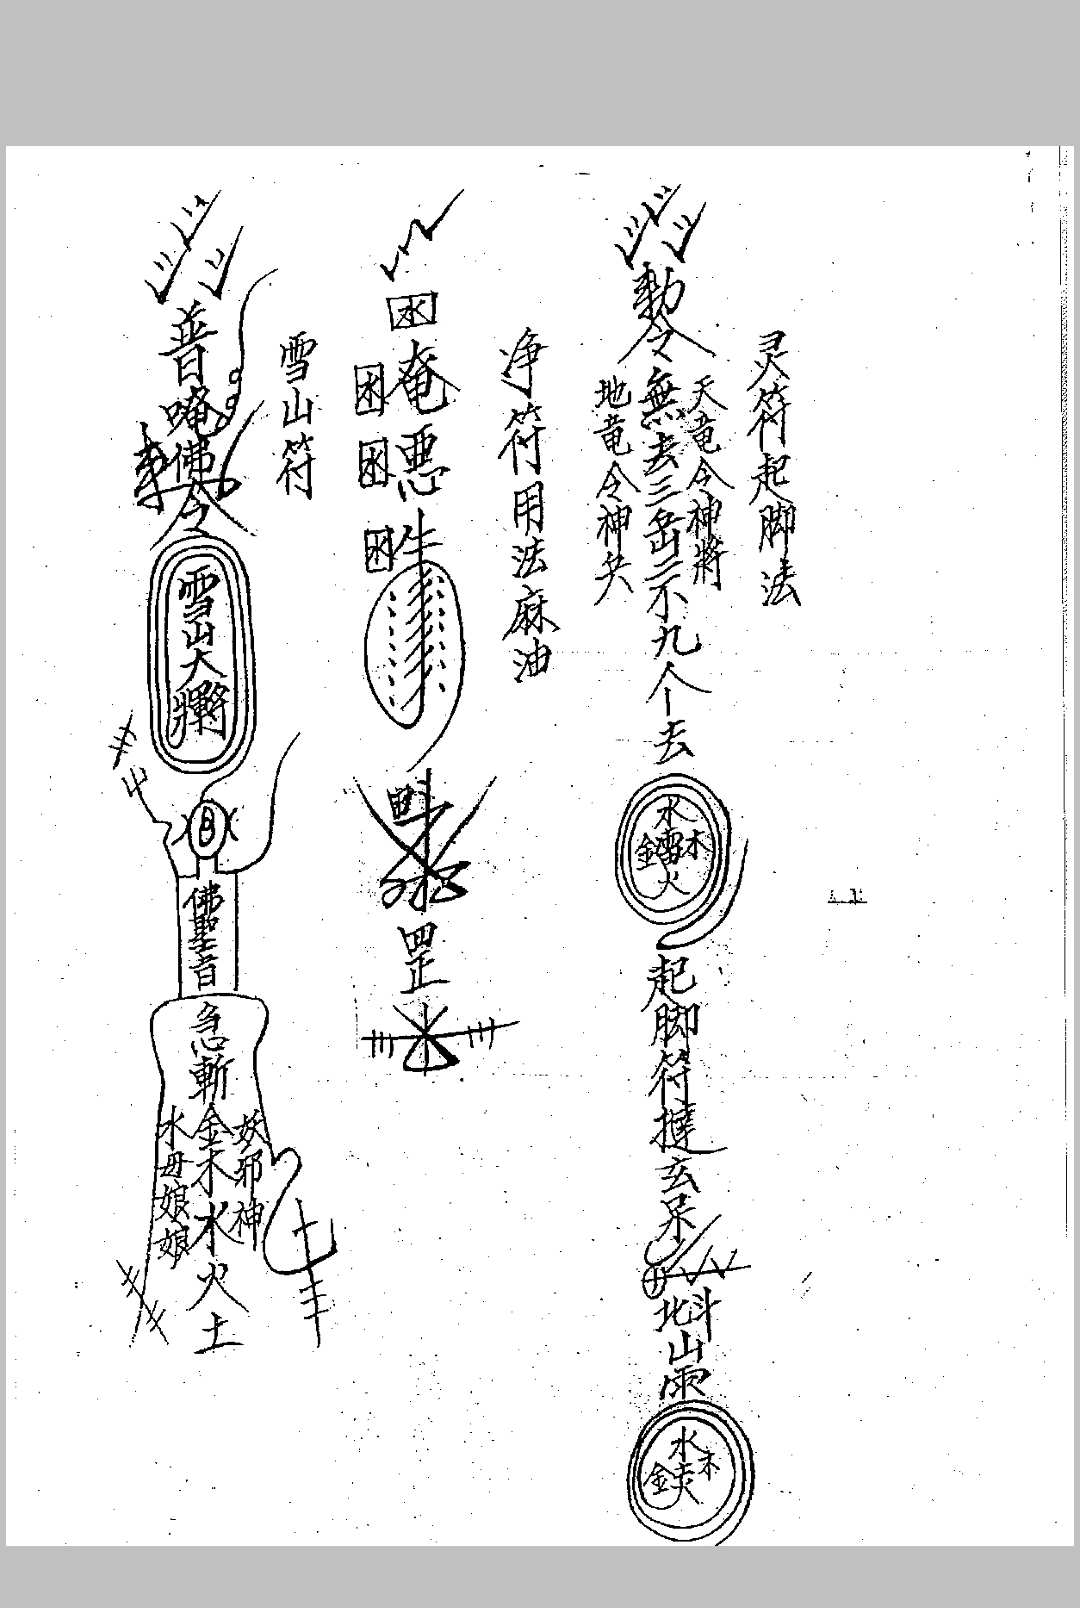 灵符起脚法
天竜令神將
勅令無去三岳三不九个去
地竜令神兵
水
金雷木
火
起脚符撻玄呆
北斗山雨
水
木
金
净符用法麻油
囦奄悪
困
困
困
罡
雪山符
普唵佛
勅令
雪山大將
佛聖音
急斬
妖邪神
金木水火土
水母娘娘